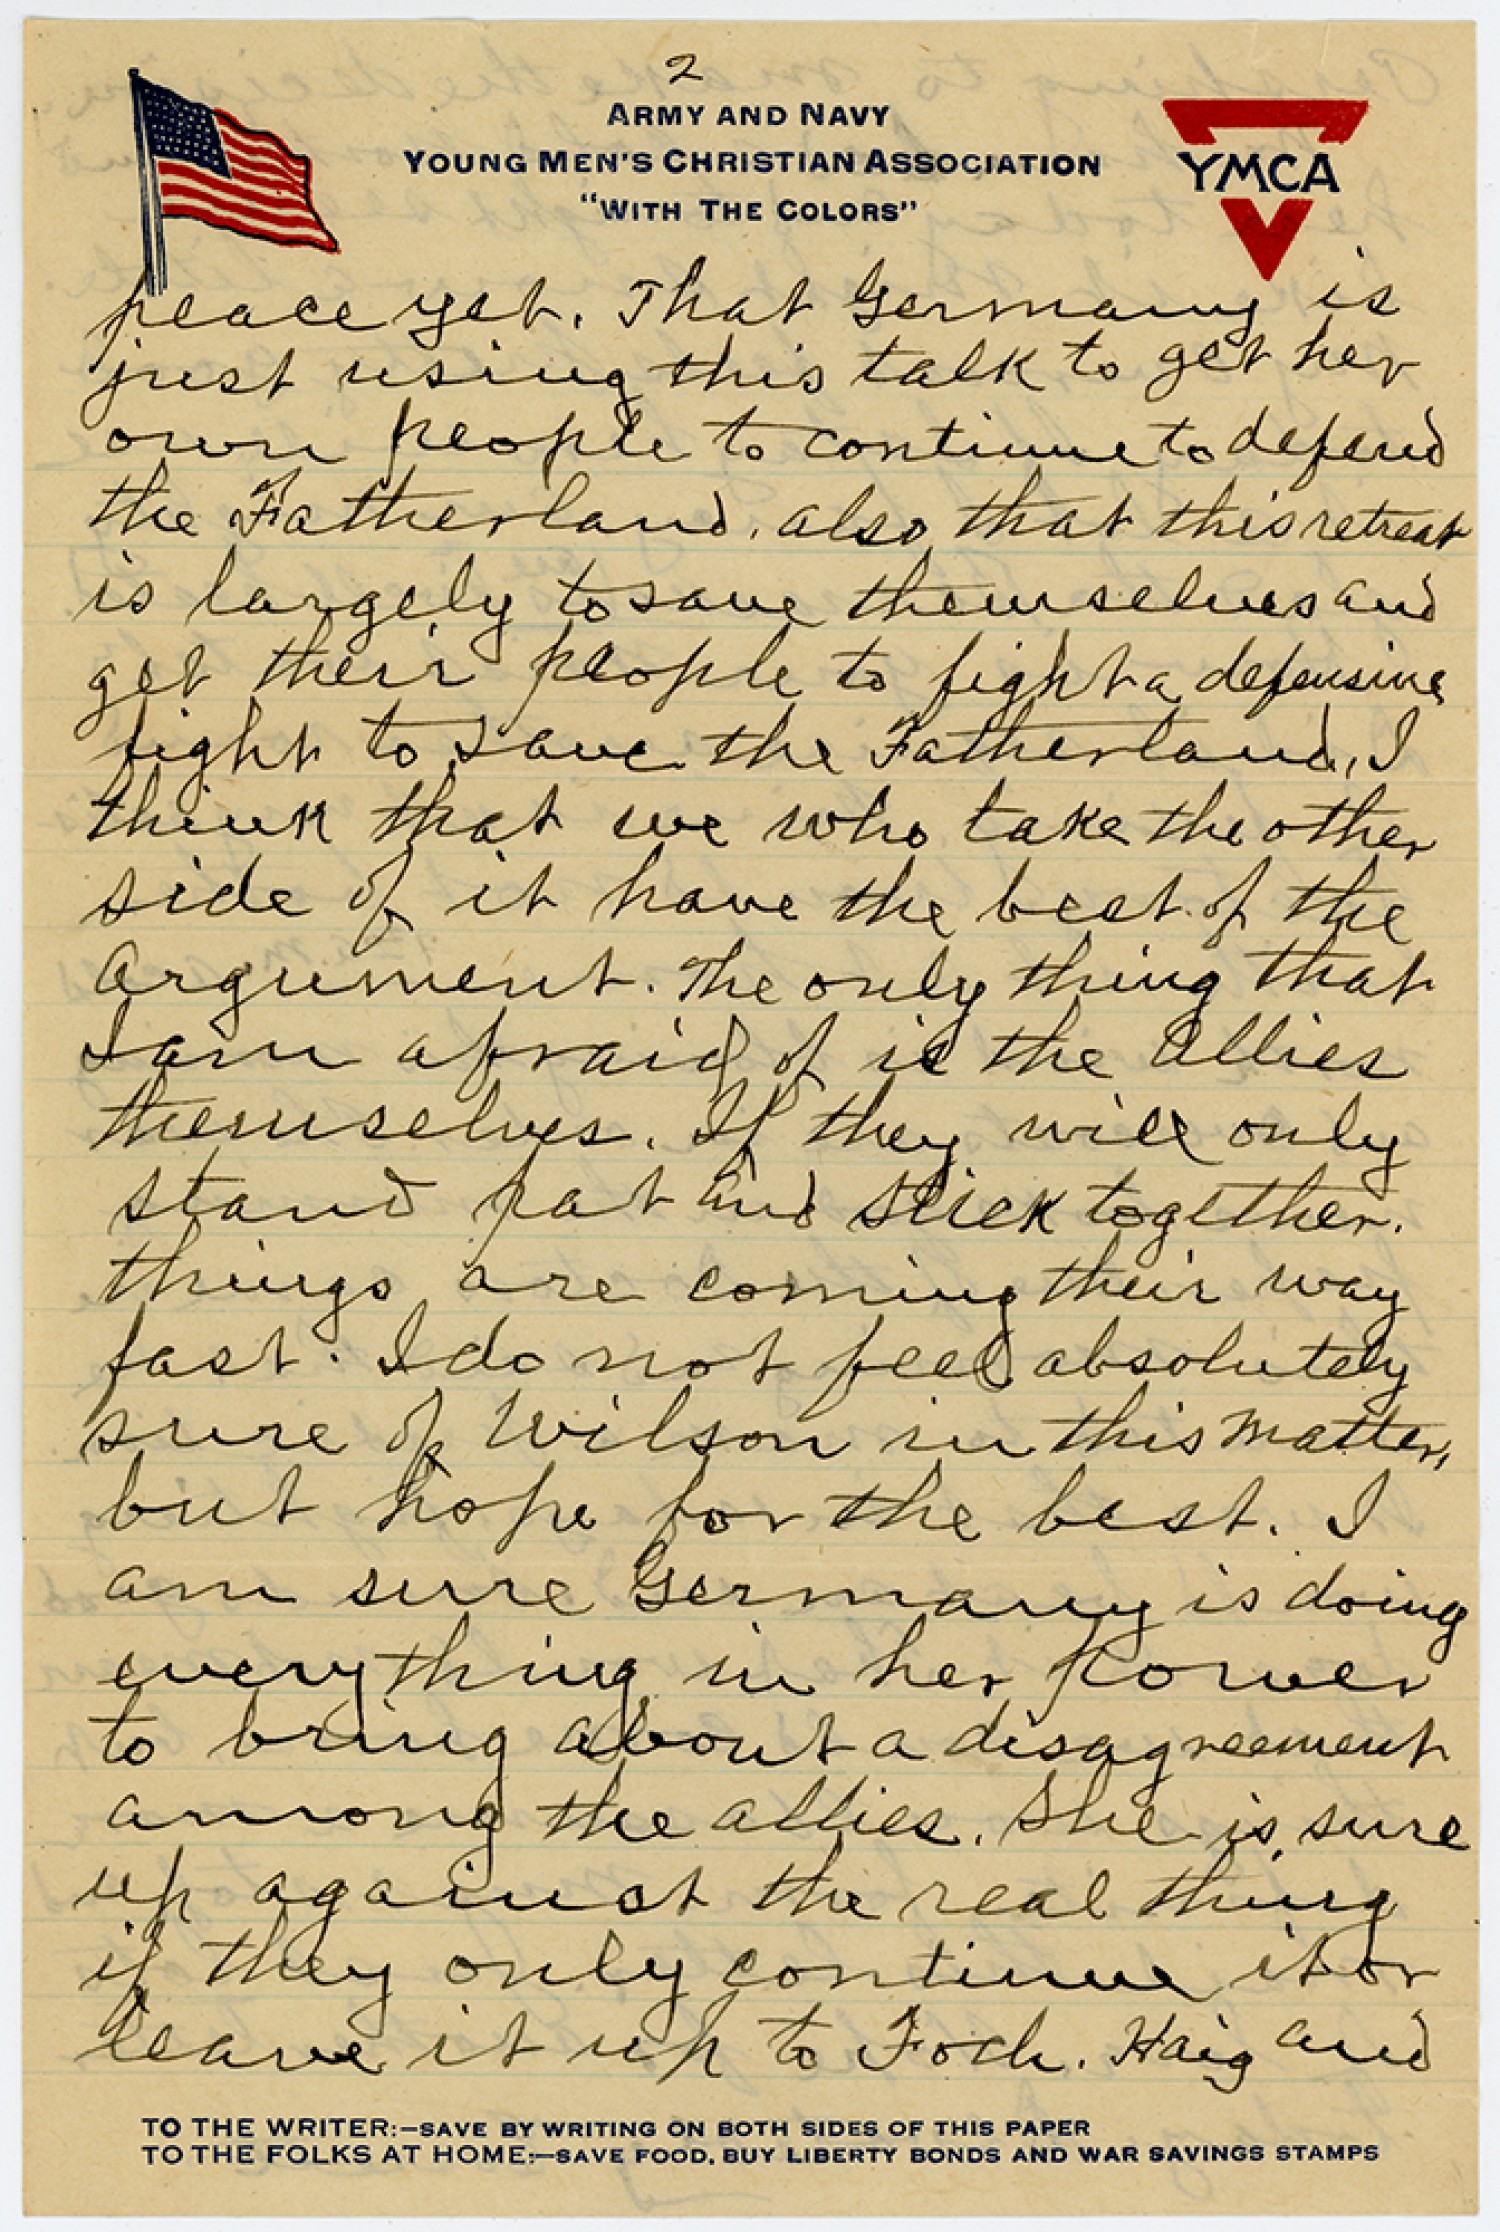 2
ARMY AND NAVY
YOUNG MEN'S CHRISTIAN ASSOCIATION
"WITH THE COLORS"
YMCA
peace yet. That Germany is
just using this talk to get her
own people to continue to defend
the Fatherland, also that this retreat
is largely to save themselves and
get their people to fight a defensive
fight to save the Fatherland, I
think that we who take the other
side of it have the best of the
argument. The only thing that
I am afraid of is the Allies
themselves. If they will only
stand pat and stick together.
things are coming their way
fast. I do not feel absolutely
sure of Wilson in this matter,
but hope for the best. I
am sure Germany is doing
everything in her power
to bring about a disagreement
among the allies. She is sure
up against the real thing
if they only continue it or
leave it up to Foch. Haig and
TO THE WRITER:—SAVE BY WRITING ON BOTH SIDES OF THIS PAPER
TO THE FOLKS AT HOME:—SAVE FOOD, BUY LIBERTY BONDS AND WAR SAVINGS STAMPS